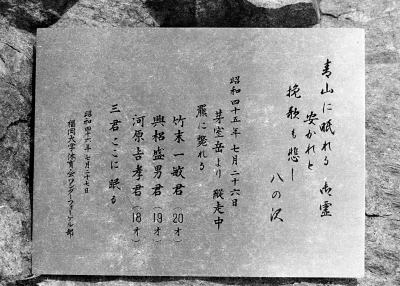 青山に眠れる御霊
安かれと
挽歌も悲し
八の沢
昭和四十五年七月二十六日
芽室岳より縦走中
羆に斃れる
竹末一敏君(20才)
興梠盛男君(19才)
河原吉孝君(18才)
三君ここに眠る
昭和四十六年七月二十七日
福岡大学体育会ワンダーフォーゲル部